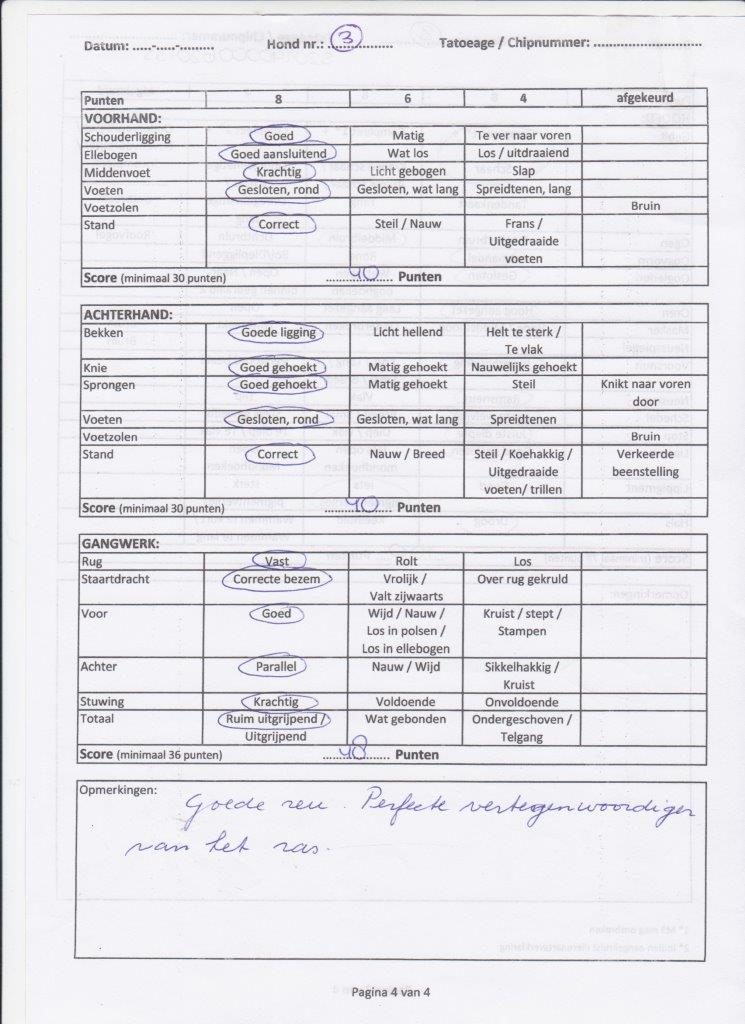 Datum: .....-.....-......... Hond nr.: 3 Tatoeage / Chipnummer: ..........................
Punten 8 6 4 afgekeurd
VOORHAND:
Schouderligging Goed Matig Te ver naar voren
Ellebogen Goed aansluitend Wat los Los / uitdraaiend
Middenvoet Krachtig Licht gebogen Slap
Voeten Gesloten, rond Gesloten, wat lang Spreidtenen, lang
Voetzolen Bruin
Stand Correct Steil / Nauw Frans /
Uitgedraaide
voeten
Score (minimaal 30 punten) 40 Punten
ACHTERHAND:
Bekken Goede ligging Licht hellend Helt te sterk /
Te vlak
Knie Goed gehoekt Matig gehoekt Nauwelijks gehoekt
Sprongen Goed gehoekt Matig gehoekt Steil Knikt naar voren
door
Voeten Gesloten, rond Gesloten, wat lang Spreidtenen
Voetzolen Bruin
Stand Correct Nauw / Breed Steil / Koehakkig / Verkeerde
Uitgedraaide beenstelling
voeten/ trillen
Score (minimaal 30 punten) 40 Punten
GANGWERK:
Rug Vast Rolt Los
Staartdracht Correcte bezem Vrolijk / Over rug gekruld
Valt zijwaarts
Voor Goed Wijd / Nauw / Kruist / stept /
Los in polsen / Stampen
Los in ellebogen
Achter Parallel Nauw / Wijd Sikkelhakkig /
Kruist
Stuwing Krachtig Voldoende Onvoldoende
Totaal Ruim uitgrijpend / Wat gebonden Ondergeschoven /
Uitgrijpend Telgang
Score (minimaal 36 punten) 48 Punten
Opmerkingen:
Goede reu. Perfecte vertegenwoordiger
van het ras.
Pagina 4 van 4